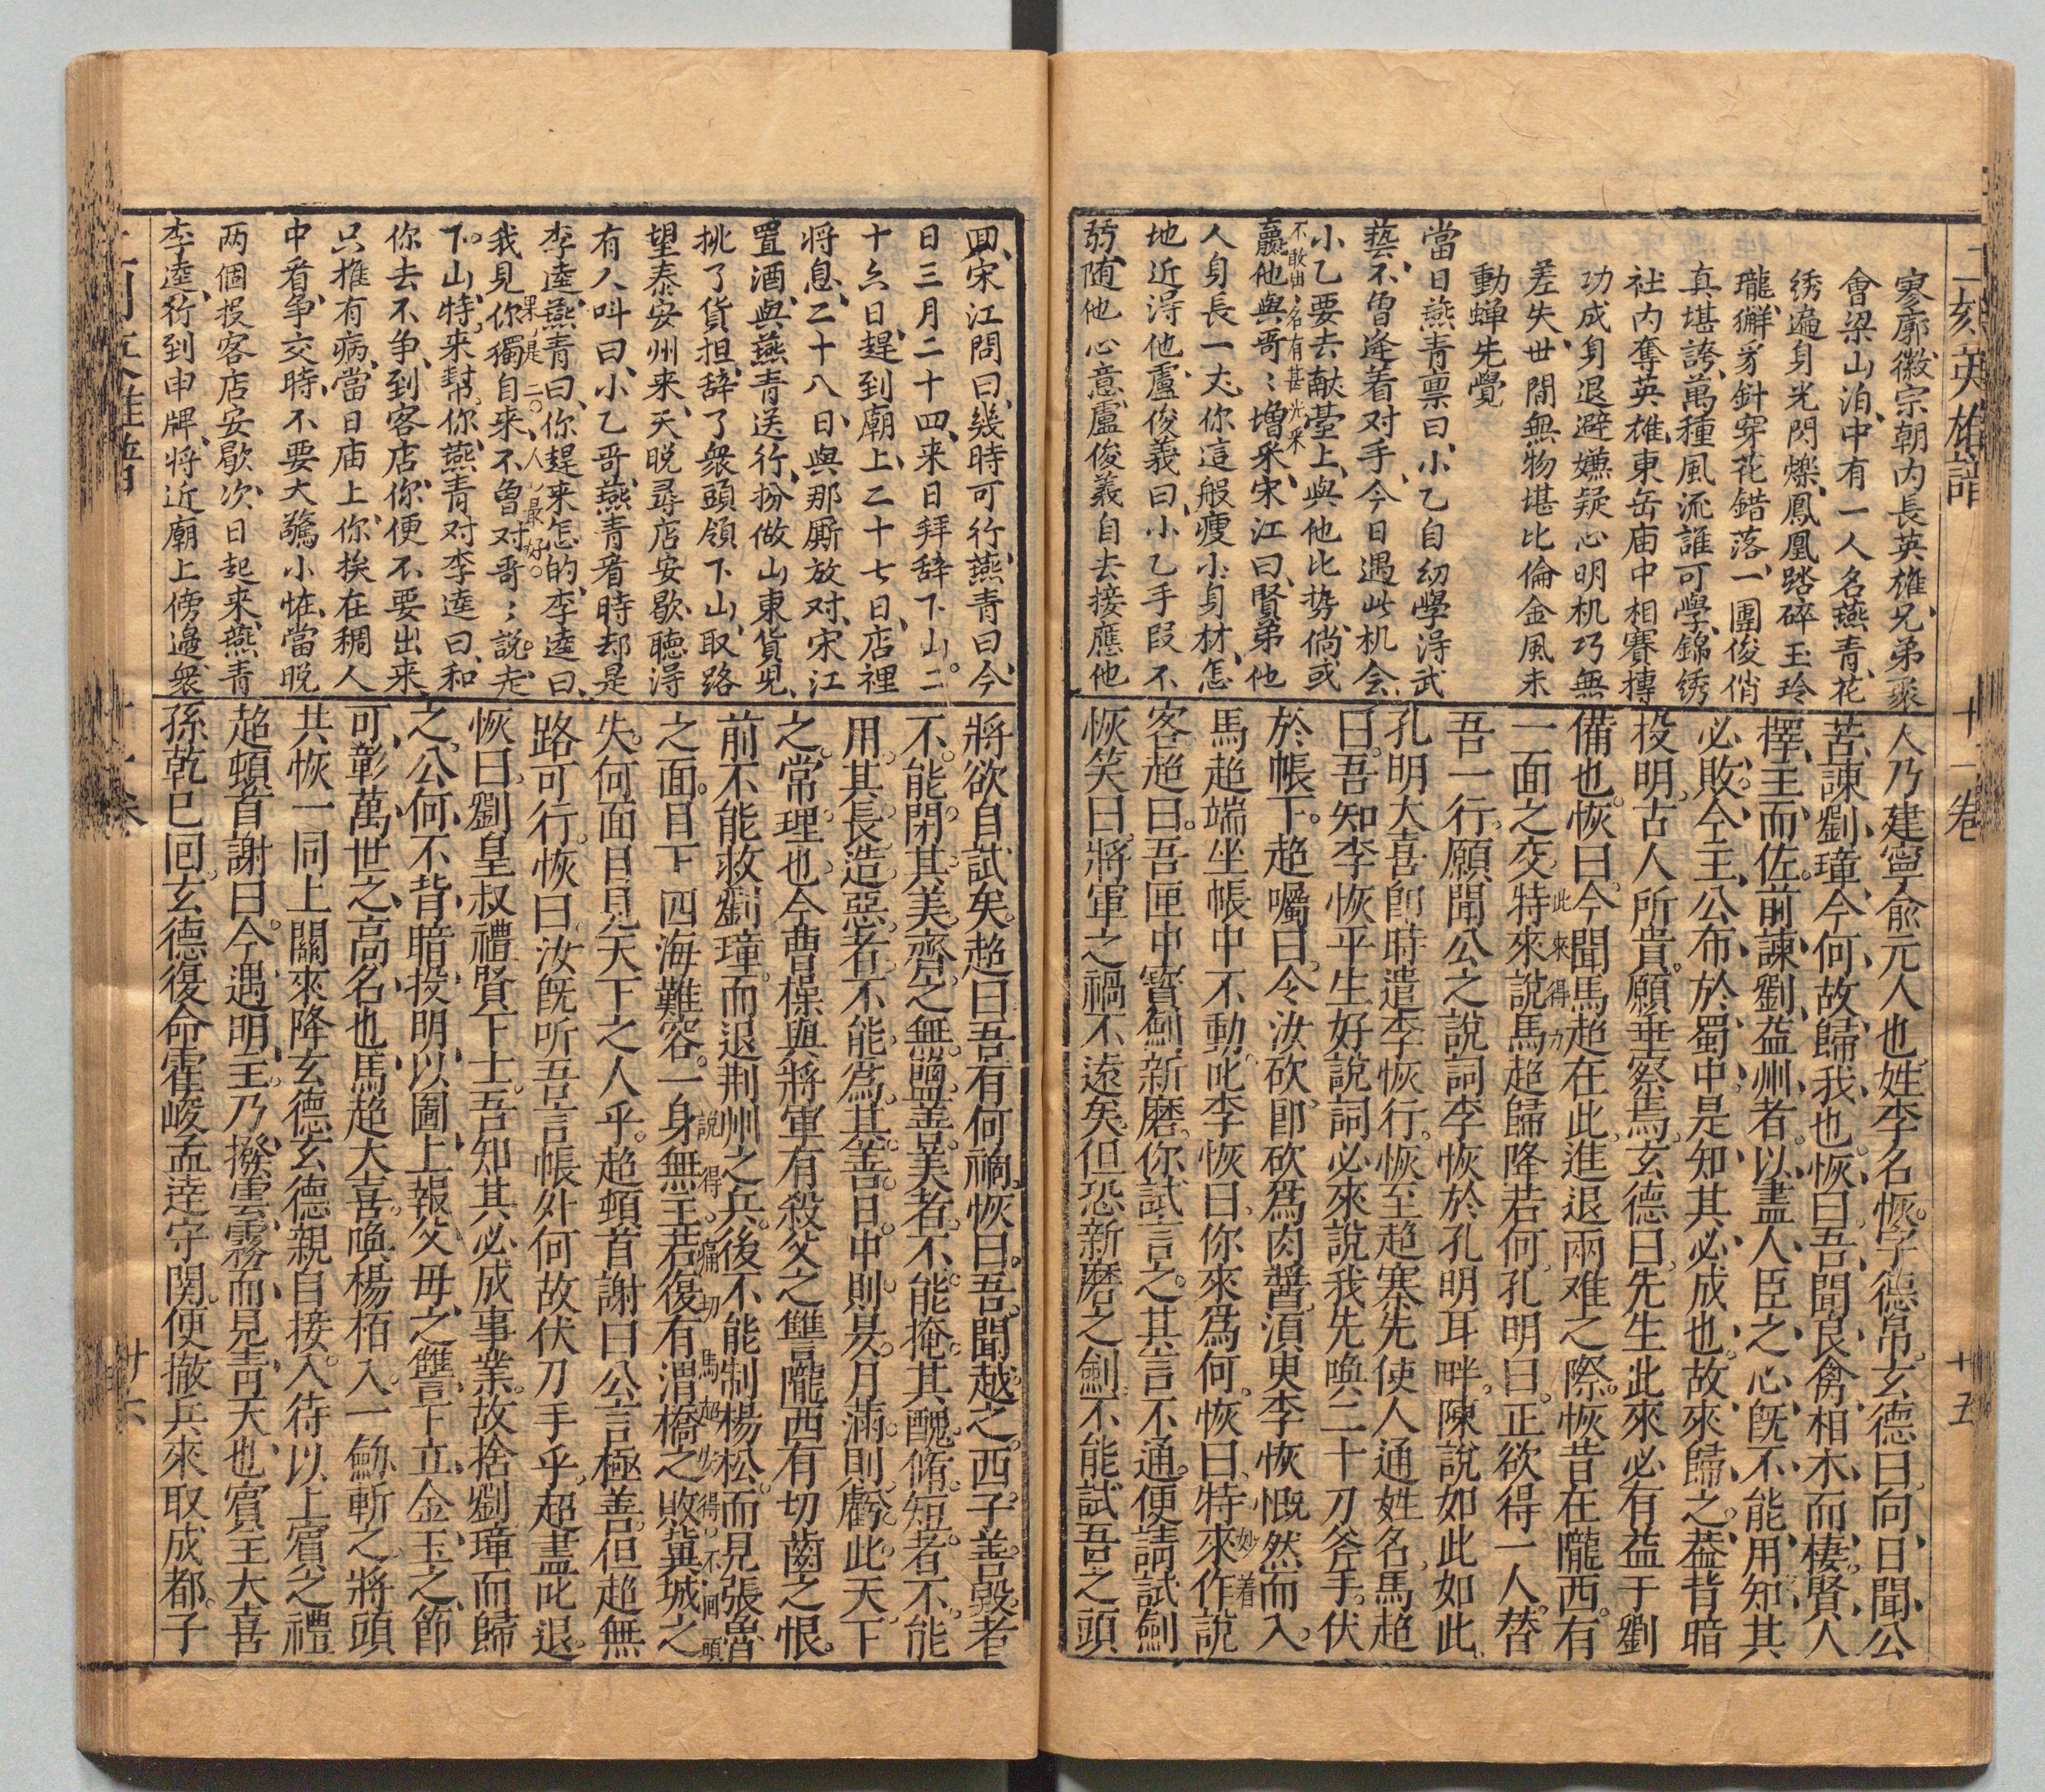 二刻英雄譜
十一卷
十五
寥廓徽宗朝內長英雄兄弟聚
會梁山泊中有一人名燕青花
綉遍身光閃爍鳳凰踏碎玉玲
瓏獬豸針穿花錯落一團俊俏
真堪誇萬種風流誰可學錦綉
社內奪英雄東岳庙中相賽摶
功成身退避嫌疑心明机巧無
差失世間無物堪比倫金風未
動蟬先覺
當日燕青禀曰小乙自幼學淂武
藝不曾逢着对手今日遇此机会
小乙要去献䑓上與他比势倘或
不敢出名有甚光釆
贏他與哥〻增釆宋江曰賢弟他
人身長一丈你這般瘦小身材怎
地近淂他盧俊義曰小乙手段不
弱随他心意盧俊義自去接應他
人乃建寧俞元人也姓李名恢字德昂玄德曰向日聞公
苦諫劉璋今何故歸我也恢曰吾聞良禽相木而棲賢人
擇主而佐前諫劉益州者以盡人臣之心既不能用知其
必敗今主公布於蜀中是知其必成也故來歸之葢背暗
投明古人所貴願垂察焉玄德曰先生此來必有益于劉
備也恢曰今聞馬超在此進退兩难之際恢昔在隴西有
此來得力
一面之交特來說馬超歸降若何孔明曰正欲得一人替
吾一行願聞公之說詞李恢於孔明耳畔陳說如此如此
孔明大喜卽時遣李恢行恢至超寨先使人通姓名馬超
曰吾知李恢平生好說詞必來說我先喚二十刀斧手伏
於帳下超囑曰令汝砍卽砍爲肉醬湏臾李恢慨然而入
馬超端坐帳中不動叱李恢曰你來爲何恢曰特來作說
妙着
客超曰吾匣中寳劍新磨你試言之其言不通便請試劍
恢笑曰將軍之禍不遠矣但恐新磨之劍不能試吾之頭
囬宋江問曰幾時可行燕青曰今
日三月二十四来日拜辞下山二
十六日趕到廟上二十七日店裡
将息二十八日與那厮放对宋江
置酒與燕青送行扮做山東貨児
挑了貨担辞了衆頭領下山取路
望泰安州来天晚尋店安歇聴淂
有人叫曰小乙哥燕青看時却是
李逵燕青曰你趕来怎的李逵曰
果是二人最好
我見你獨自来不曾对哥〻說走
下山特来幇你燕青对李逵曰和
你去不争到客店你便不要出来
只推有病當日庙上你挨在稠人
中看争交時不要大驚小恠當晚
两個投客店安歇次日起来燕青
李逵行到申牌将近廟上傍邉衆
將欲自試矣超曰吾有何禍恢曰吾聞越之西子善毀者
不能閉其美齊之無鹽善美者不能掩其醜脩短者不能
用其長造惡者不能爲其善日中則昃月滿則虧此天下
之常理也今曹操與將軍有殺父之讐隴西有切齒之恨
前不能救劉璋而退荆州之兵後不能制楊松而見張魯
說得痛切馬超安得不囬頭
之面目下四海難容一身無主若復有渭橋之敗冀城之
失何面目見天下之人乎超頓首謝曰公言極善但超無
路可行恢曰汝旣听吾言帳外何故伏刀手乎超盡叱退
恢曰劉皇叔禮賢下士吾知其必成事業故捨劉璋而歸
之公何不背暗投明以圖上報父母之讐下立金玉之節
可彰萬世之高名也馬超大喜喚楊栢入一劒斬之將頭
共恢一同上關來降玄德玄德親自接入待以上賓之禮
超頓首謝曰今遇明主乃撥雲霧而見青天也賓主大喜
孫乾已回玄德復命霍峻孟逹守関便撤兵來取成都子